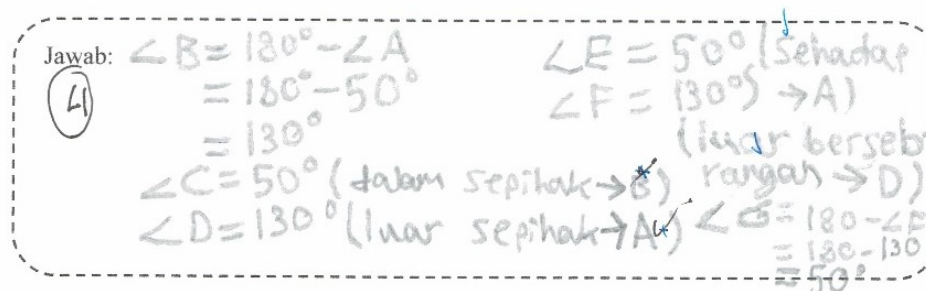 Jawab:
4
∠B = 180° - ∠A
= 180° - 50°
= 130°
∠C = 50° (dalam sepihak → B)
∠D = 130° (luar sepihak → A)
∠E = 50° (Sehadap → A)
∠F = 130°
(luar berseb
rangan → D)
∠G = 180 - ∠F
= 180 - 130
= 50°